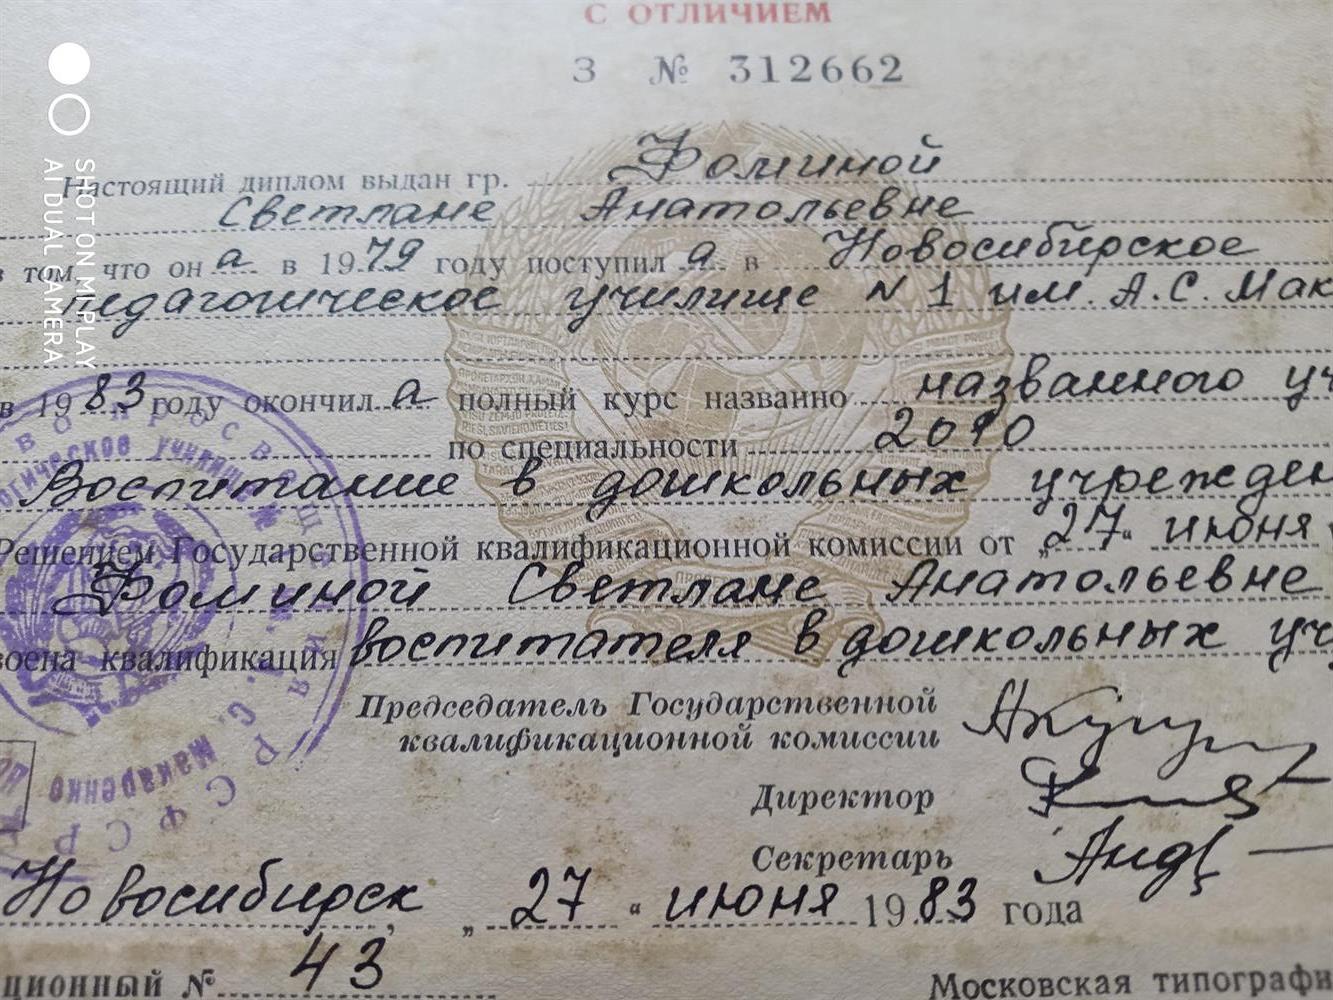 С ОТЛИЧИЕМ
З № 312662
Настоящий диплом выдан гр. Фоминой
Светлане Анатольевне
в том, что он а в 1979 году поступил а в Новосибирское
педагогическое училище N 1 им. А.С. Мак
в 1983 году окончил а полный курс названно названного уч
по специальности 2010
Воспитание в дошкольных учрежден
Решением Государственной квалификационной комиссии от „27“ июня
Фоминой Светлане Анатольевне
воена квалификация воспитателя в дошкольных уч
Председатель Государственной
квалификационной комиссии
Директор
Секретарь
Новосибирск, „27“ июня 1983 года
ционный № 43
Московская типографи
SHOT ON MI PLAY
AI DUAL CAMERA
педагогическое училище №
Макаренко
РСФСР